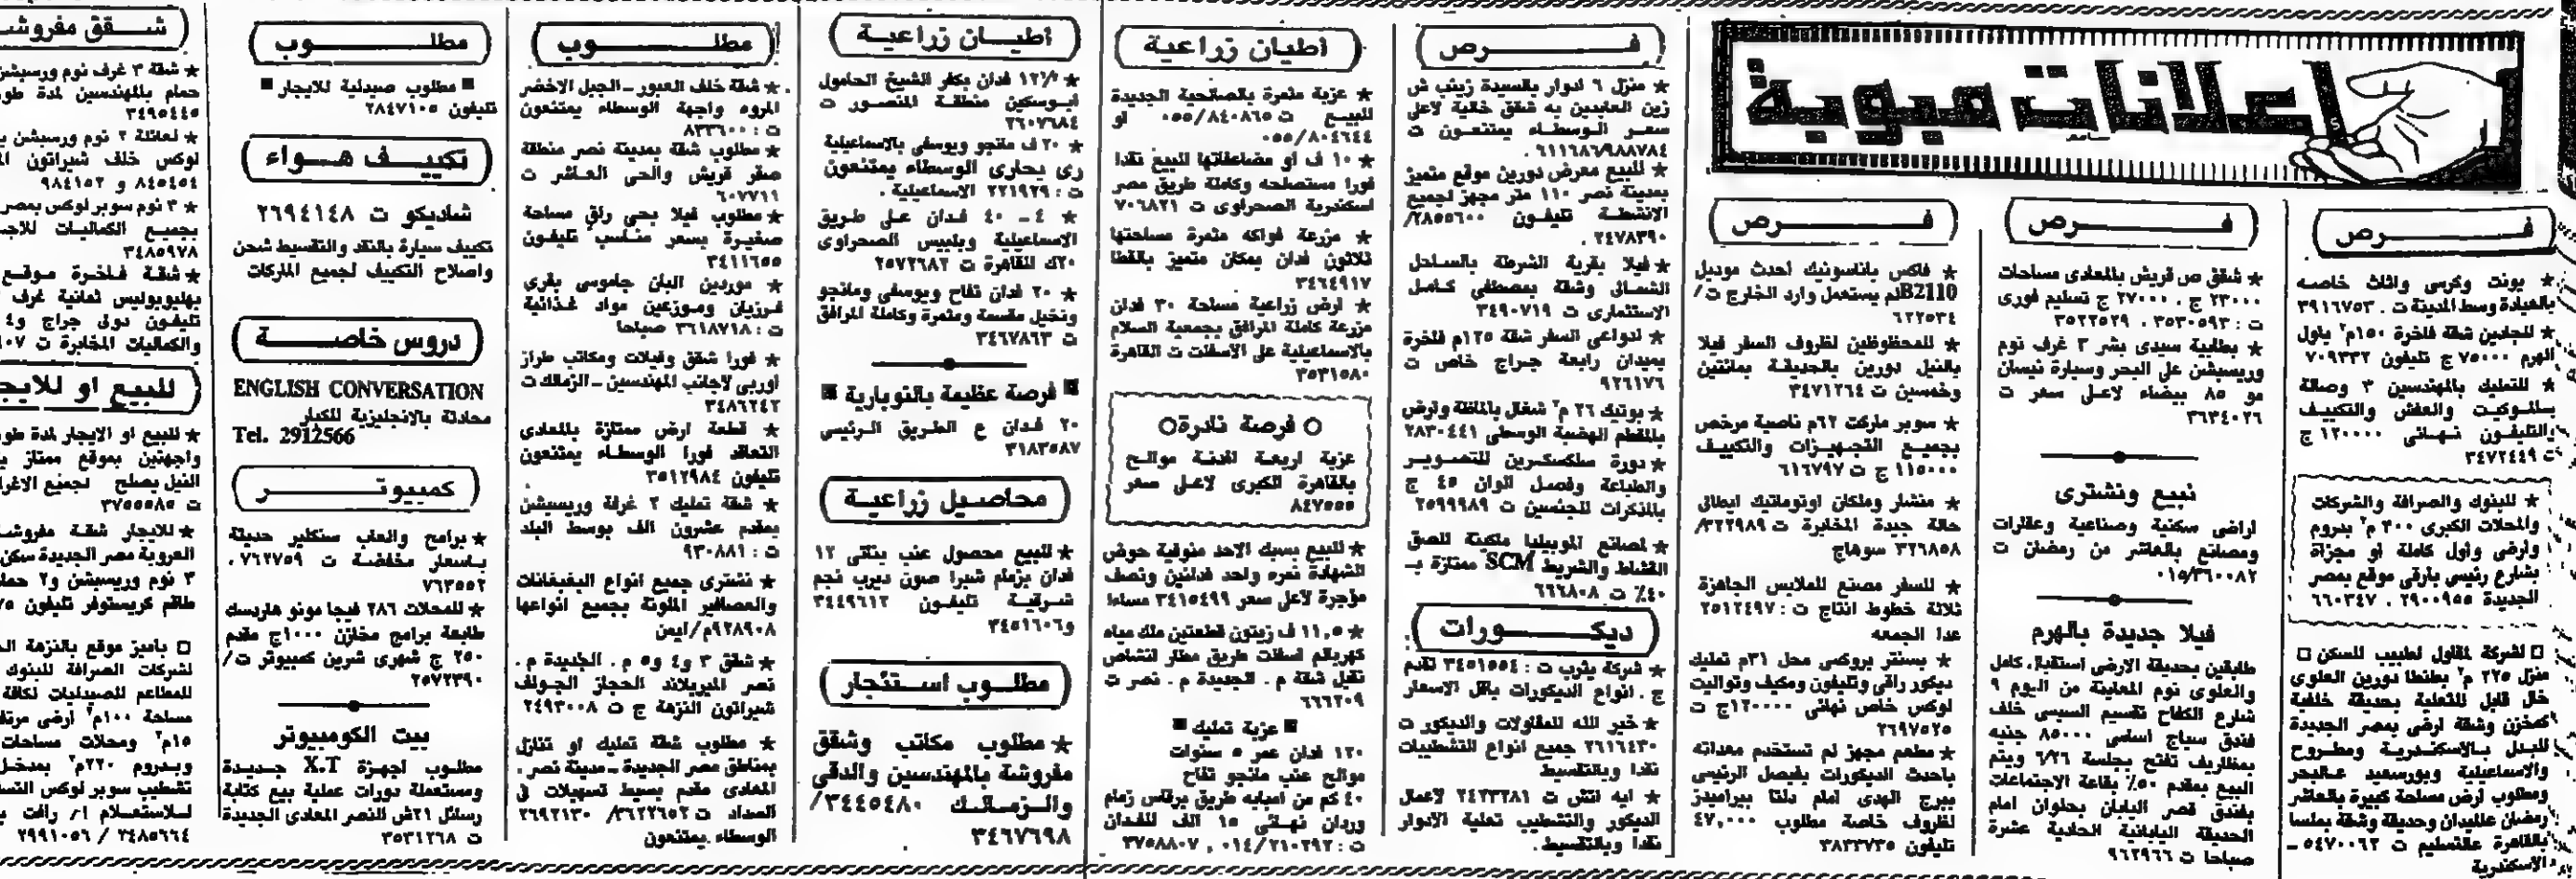 اعلانات مبوبة
فرص
★ يونت وكرسى واثاث خاصه
بالعيادة وسط المدينة ت . ٣٩١٦٧٥٣
★ للجادين شقة فاخرة ١٥٠م٢ باول
الهرم ٧٥٠٠٠ ج تليفون ٧٠٩٣٣٢
★ للتمليك بالمهندسين ٣ وصالة
بسلموكيت والعفش والتكييف
والتليفون نهائى ١٢٠٠٠٠ ج
ت ٣٤٧٢٤٤٩
★ للبنوك والصرافة والشركات
والمحلات الكبرى ٣٠٠ م٢ بدروم
وارضى واول كاملة او مجزاة
بشارع رئيسى بارقى موقع بمصر
الجديدة ٢٩٠٠٩٥٥ . ٦٦٠٣٤٧
□ لشركة لمقاول لطبيب للسكن □
منزل ٢٢٥ م٢ بطنطا دورين العلوى
خال قابل للتعلية بحديقة خلفية
كمخزن وشقة ارضى بمصر الجديدة
للبدل بالاسكندرية ومطروح
والاسماعيلية وبورسعيد عالبحر
ومطلوب ارض مساحة كبيرة بالعاشر
رمضان عالميدان وحديقة وشقة بملسا
بالقاهرة عالتسليم ت ٥٤٧٠٠٦٢ ـ
الاسكندرية
فرص
★ شقق ص قريش بالمعادى مساحات
٢٣٠٠٠ ج . ٢٧٠٠٠ ج تسليم فورى
ت : ٣٥٣٠٥٩٣ . ٣٥٢٢٥٢٩
★ بطلبية سيدى بشر ٣ غرف نوم
وريسبشن على البحر وسيارة نيسان
مو ٨٥ بيضاء لاعلى سعر ت
٣٦٣٤٠٢٦
نبيع ونشترى
اراضى سكنية وصناعية وعقارات
ومصانع بالعاشر من رمضان ت
٠١٥/٣٦٠٠٨٢
فيلا جديدة بالهرم
طابقين بحديقة الارضى استقبال كامل
والعلوى نوم المعاينة من اليوم ٩
شارع الكفاح تقسيم السيسى خلف
فندق سياج اساسى ٨٥٠٠٠ جنيه
بمظاريف تفتح بجلسة ٦/٢٦ ويتم
البيع بمقدم ٥٠٪ بقاعة الاجتماعات
بفندق قصر اليابان بحلوان امام
الحديقة اليابانية الحادية عشرة
صباحا ت ٩٦٢٩٦٦
فرص
★ فاكس باناسونيك أحدث موديل
B2110 لم يستعمل وارد الخارج ت/
٦٢٢٥٣٤
★ للمحظوظين لظروف السفر فيلا
بالنيل دورين بالحديقة بمائتين
وخمسين ت ٣٤٧١٢٦٤
★ سوبر ماركت ٦٢م ناصية مرخص
بجميع التجهيزات والتكييف
١١٥٠٠٠ ج ت ٦١٦٧٩٧
★ منشار وملكان اوتوماتيك ايطالى
حالة جيدة المخابرة ت ٣٢٢٩٨٩/
٣٢٦٨٥٨ سوهاج
★ للسفر مصنع للملابس الجاهزة
ثلاثة خطوط انتاج ت : ٢٥١٢٤٩٧
عدا الجمعه
★ بسنتر بروكسى محل ٣١م تمليك
ديكور راقى وتليفون ومكيف وتواليت
لوكس خاص نهائى ١٢٠٠٠٠ج ت
٢٦٩٧٥٢٥
★ مطعم مجهز لم تستخدم معداته
باحدث الديكورات بفيصل الرئيسى
ببرج الهدى امام دلتا بيراميدز
لظروف خاصة مطلوب ٤٧,٠٠٠
تليفون ٣٨٣٣٧٣٥
فرص
★ منزل ٦ ادوار بالسيدة زينب ش
زين العابدين به شقق خالية لاعلى
سعر الوسطاء يمتنعون ت
٦١١٦٨٦/٩٨٨٧٨٤ .
★ للبيع معرض دورين موقع متميز
بمدينة نصر ١١٠ متر مجهز لجميع
الانشطة تليفون ٢٨٥٥٦٠٠/
٢٤٧٨٣٩٠ .
★ فيلا بقرية الشرطة بالساحل
الشمالى وشقة بمصطفى كامل
الاستثمارى ت ٣٤٩٠٧١٩
★ لدواعى السفر شقة ١٢٥م فاخرة
بميدان رابعة جراج خاص ت
٩٢٦١٧٦
★ بوتيك ٢٦ م٢ شغال بالماظة وارض
بالمقطم الهضبة الوسطى ٢٨٣٠٤٤١
★ دورة سلكسكرين للتصوير
والطباعة وفصل الوان ٤٥ ج
بالمذكرات للجنسين ت ٢٥٩٩٩٨٩
★ لمصانع الموبيليا ماكينة للصق
القشاط والشريط SCM ممتازة بـ
٤٠٪ ت ٦٦٦٨٠٨
ديكورات
★ شركة يثرب ت : ٣٤٥١٥٥٤ تقدم
ج . انواع الديكورات باقل الاسعار
★ خير الله للمقاولات والديكور ت
٢٦١٦٤٣٠ جميع انواع التشطيبات
نقدا وبالتقسيط
★ ايه اتش ت ٢٤٢٣٢٨١ لاعمال
الديكور والتشطيب تعلية الادوار
نقدا وبالتقسيط .
اطيان زراعية
★ عزبة مثمرة بالصالحية الجديدة
للبيع ت ٠٥٥/٨٤٠٨٦٥ او
٠٥٥/٨٠٤٦٤٤
★ ١٠ ف او مضاعفاتها للبيع نقدا
فورا مستصلحه وكاملة طريق مصر
اسكندرية الصحراوى ت ٧٠٦٨٢١
★ مزرعة فواكه مثمرة مساحتها
ثلاثون فدان بمكان متميز بالقطا
٣٤٦٤٩١٧
★ ارض زراعية مساحة ٣٠ فدان
مزرعة كاملة المرافق بجمعية السلام
بالاسماعيلية على الاسفلت ت القاهرة
٣٥٣١٥٨٠
○ فرصة نادرة ○
عزبة اربعة افدنة موالح
بالقاهرة الكبرى لاعلى سعر
٨٤٧٥٥٥
★ للبيع بسبك الاحد منوفية حوض
الشهادة نمره واحد فدانين ونصف
مؤجرة لاعلى سعر ٣٤١٥٤٩٩ مساءا
★ ١١,٥ ف زيتون قطعتين ملك مياه
كهربائم اسفلت طريق مطار انشاص
نقبل شقة م . الجديدة م . نصر ت
٦٦٦٢٠٩
■ عزبة تمليك ■
١٢٠ فدان عمر ٥ سنوات
موالح عنب مانجو تفاح
٤٠ كم من امبابه طريق برقاس زمام
وردان نهائى ١٥ الف للفدان
ت : ٠١٤/٢١٠٢٩٢ , ٣٧٥٨٨٠٧
اطيان زراعية
★ ١٢/٢ فدان بكفر الشيخ الحامول
ابوسكين منطقة المنصور ت
٢٦٠٧٦٨٤
★ ٢٠ ف مانجو ويوسفى بالاسماعيلية
رى بحارى الوسطاء يمتنعون
ت : ٢٢١٩٢٩ الاسماعيلية .
★ ٤ ـ ٤٠ فدان على طريق
الاسماعيلية وبلبيس الصحراوى
٢٠ك القاهرة ت ٢٥٧٢٦٨٢
★ ٢٠ فدان تفاح ويوسفى ومانجو
ونخيل مقسمة ومثمرة وكاملة المرافق
ت ٣٤٦٧٨٦٣
■ فرصة عظيمة بالنوبارية ■
٢٠ فدان ع الطريق الرئيسى
٣١٨٣٥٨٧
محاصيل زراعية
★ للبيع محصول عنب بناتى ١٢
فدان بزمام شبرا صون ديرب نجم
شرقية تليفون ٣٤٤٩٦١٢
و٣٤٥١٦٠٦
مطلوب استئجار
★ مطلوب مكاتب وشقق
مفروشة بالمهندسين والدقى
والزمالك ٣٤٤٥٤٨٠/
٣٤٦٧٦٩٨
مطلوب
★ شقة خلف العبور ـ الجبل الاخضر
المروه واجهة الوسطاء يمتنعون
ت : ٨٣٣٦٠٠
★ مطلوب شقة بمدينة نصر منطقة
صقر قريش والحى العاشر ت
٦٠٧٧١١
★ مطلوب فيلا بحى راق مساحة
صغيرة بسعر مناسب تليفون
٣٤١١٦٥٥
★ موردين البان جاموسى بقرى
فرزيان وموزعين مواد غذائية
ت : ٣٦١٨٧١٨ صباحا
★ فورا شقق وفيلات ومكاتب طراز
اوربى لاجانب المهندسين ـ الزمالك ت
٣٤٨٦٢٤٢
★ قطعة ارض ممتازة بالمعادى
التعاقد فورا الوسطاء يمتنعون
تليفون ٣٥١٢٩٨٤
★ شقة تمليك ٢ غرفة وريسبشن
بمقدم عشرون الف بوسط البلد
ت : ٩٣٠٨٨١
★ نشترى جميع انواع البغبغانات
والعصافير الملونة بجميع انواعها
٩٢٨٩٠٨م/ايمن
★ شقق ٣ و٤ و٥ م . الجديدة م .
نصر الميريلاند الحجاز الجولف
شيراتون النزهة ج ت ٢٤٩٣٠٠٨
★ مطلوب شقة تمليك او تنازل
بمناطق مصر الجديدة ـ مدينة نصر .
المعادى مقدم بسيط تسهيلات فى
السداد ت ٣٦٢٢٦٥٢/ ٢٦٩٢١٣٠
الوسطاء يمتنعون
مطلوب
■ مطلوب صيدلية للايجار ■
تليفون ٢٨٤٧١٠٥
تكييف هواء
شاديكو ت ٢٦٩٤١٤٨
تكييف سيارة بالنقد والتقسيط شحن
واصلاح التكييف لجميع الماركات
دروس خاصة
ENGLISH CONVERSATION
محادثة بالانجليزية للكبار
Tel. 2912566
كمبيوتر
★ برامج والعاب سنكلير حديثة
باسعار مخفضة ت ٧٦٢٧٥٩ .
٧٦٣٥٥٢
★ للمحلات ٢٨٦ فيجا مونو هاردسك
طابعة برامج مخازن ١٠٠٠ج مقدم
٢٥٠ ج شهرى شرين كمبيوتر ت/
٢٥٧٢٣٩٠
بيت الكومبيوتر
مطلوب اجهزة X.T جديدة
ومستعملة دورات عملية بيع كتابة
رسائل ٢١ش النصر المعادى الجديدة
ت ٣٥٣١٢٦٨
شقق مفروشـ
★ شقة ٣ غرف نوم ورسبشن
حمام بالمهندسين لمدة طو
٣٤٩٥٤٤٥
★ لعائلة ٢ نوم ورسبشن بـ
لوكس خلف شيراتون الـ
٨٤٥٤٥٤ و ٩٨٤١٥٢
★ ٣ نوم سوبر لوكس بمصر
بجميع الكماليات للاجـ
٣٤٨٥٩٧٨
★ شقة فاخرة موقع
بهليوبوليس ثمانية غرف
تليفون دولى جراج و٤
والكماليات المخابرة ت ٠٧
للبيع او للايجـ
★ للبيع او الايجار لمدة طو
واجهتين بموقع ممتاز بـ
النيل يصلح لجميع الاغرا
ت ٣٧٥٥٥٨٥
★ للايجار شقة مفروشـ
العروبة مصر الجديدة سكن
٣ نوم وريسبشن و٢ حما
طاقم كريستوفر تليفون ٢٥
□ باميز موقع بالنزهة الـ
لشركات الصرافة للبنوك
للمطاعم للصيدليات لكافة
مساحة ١٠٠م٢ ارضى مرتفـ
١٥م٢ ومحلات مساحات
وبدروم ٢٢٠م٢ بمدخل
تشطيب سوبر لوكس التسـ
للاستعلام ا/ رافت بـ
٢٤٨٥٦٦٤ / ٢٩٩١٠٥٦